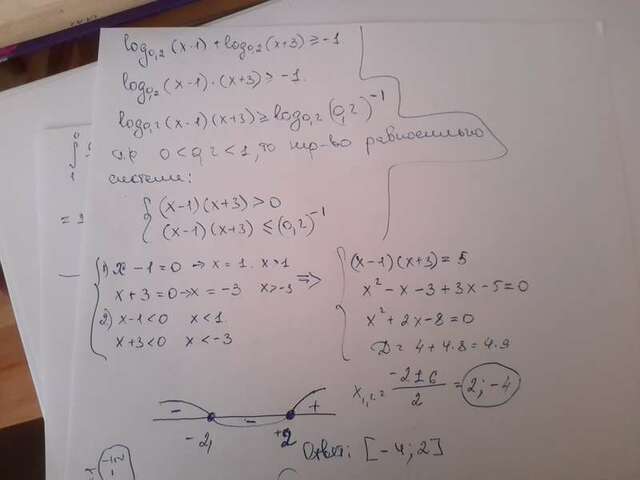 log₀,₂(x-1) + log₀,₂(x+3) ≥ -1
log₀,₂(x-1)·(x+3) ≥ -1.
log₀,₂(x-1)(x+3) ≥ log₀,₂(0,2)⁻¹
т.к 0 < 0,2 < 1, то нер-во равносильно
системе:
{ (x-1)(x+3) > 0
(x-1)(x+3) ≤ (0,2)⁻¹
1) x-1=0 → x=1. x>1
x+3=0 → x=-3 x>-3
2) x-1<0 x<1
x+3<0 x<-3
⇒ { (x-1)(x+3) = 5
x² - x - 3 + 3x - 5 = 0
x² + 2x - 8 = 0
D = 4 + 4·8 = 4·9
x₁,₂ = -2±6/2 = 2; -4
- - +
-2, +2
Ответ: [-4; 2]